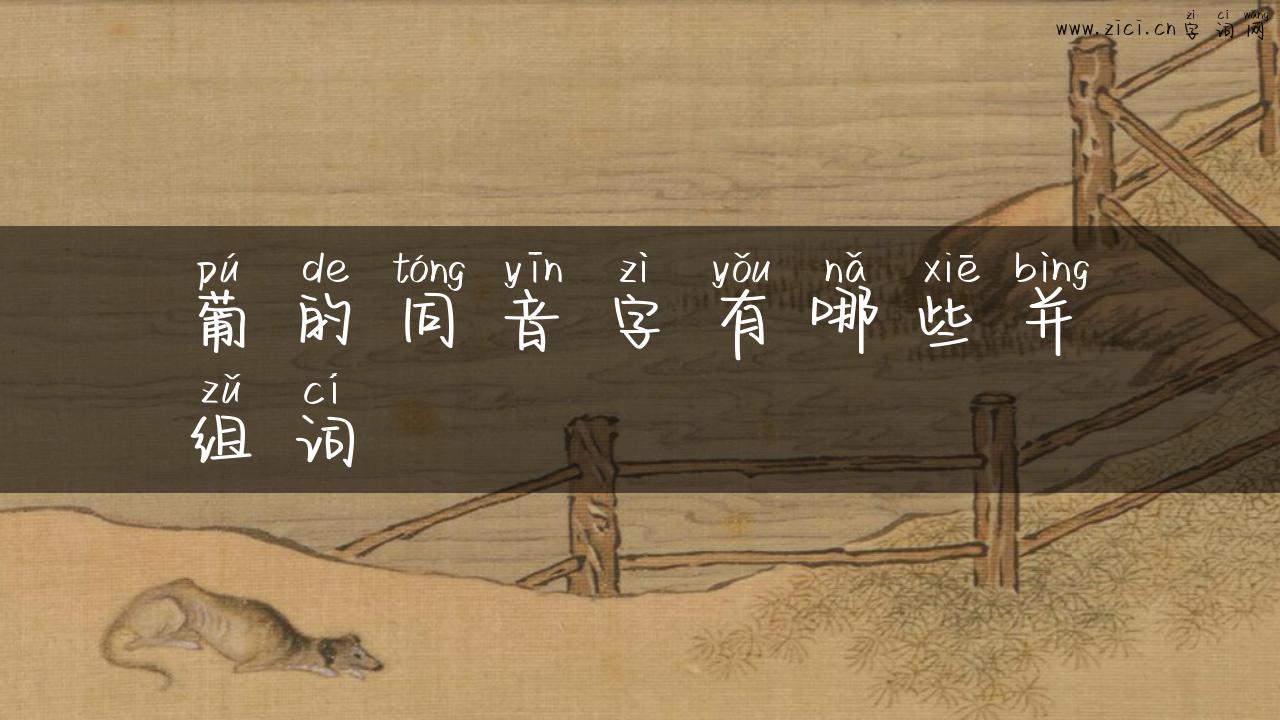 zì cí wǎng
www.zici.cn字词网
pú de tóng yīn zì yǒu nǎ xiē bìng
葡的同音字有哪些并
zǔ cí
组词